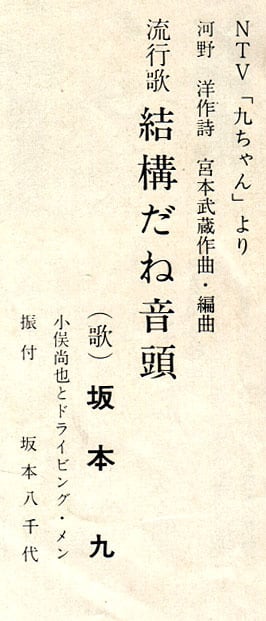 NTV「九ちゃん」より
河野 洋作詩 宮本武蔵作曲・編曲
流行歌 結構だね音頭
（歌）坂本九
小俣尚也とドライビング・メン
振付 坂本八千代